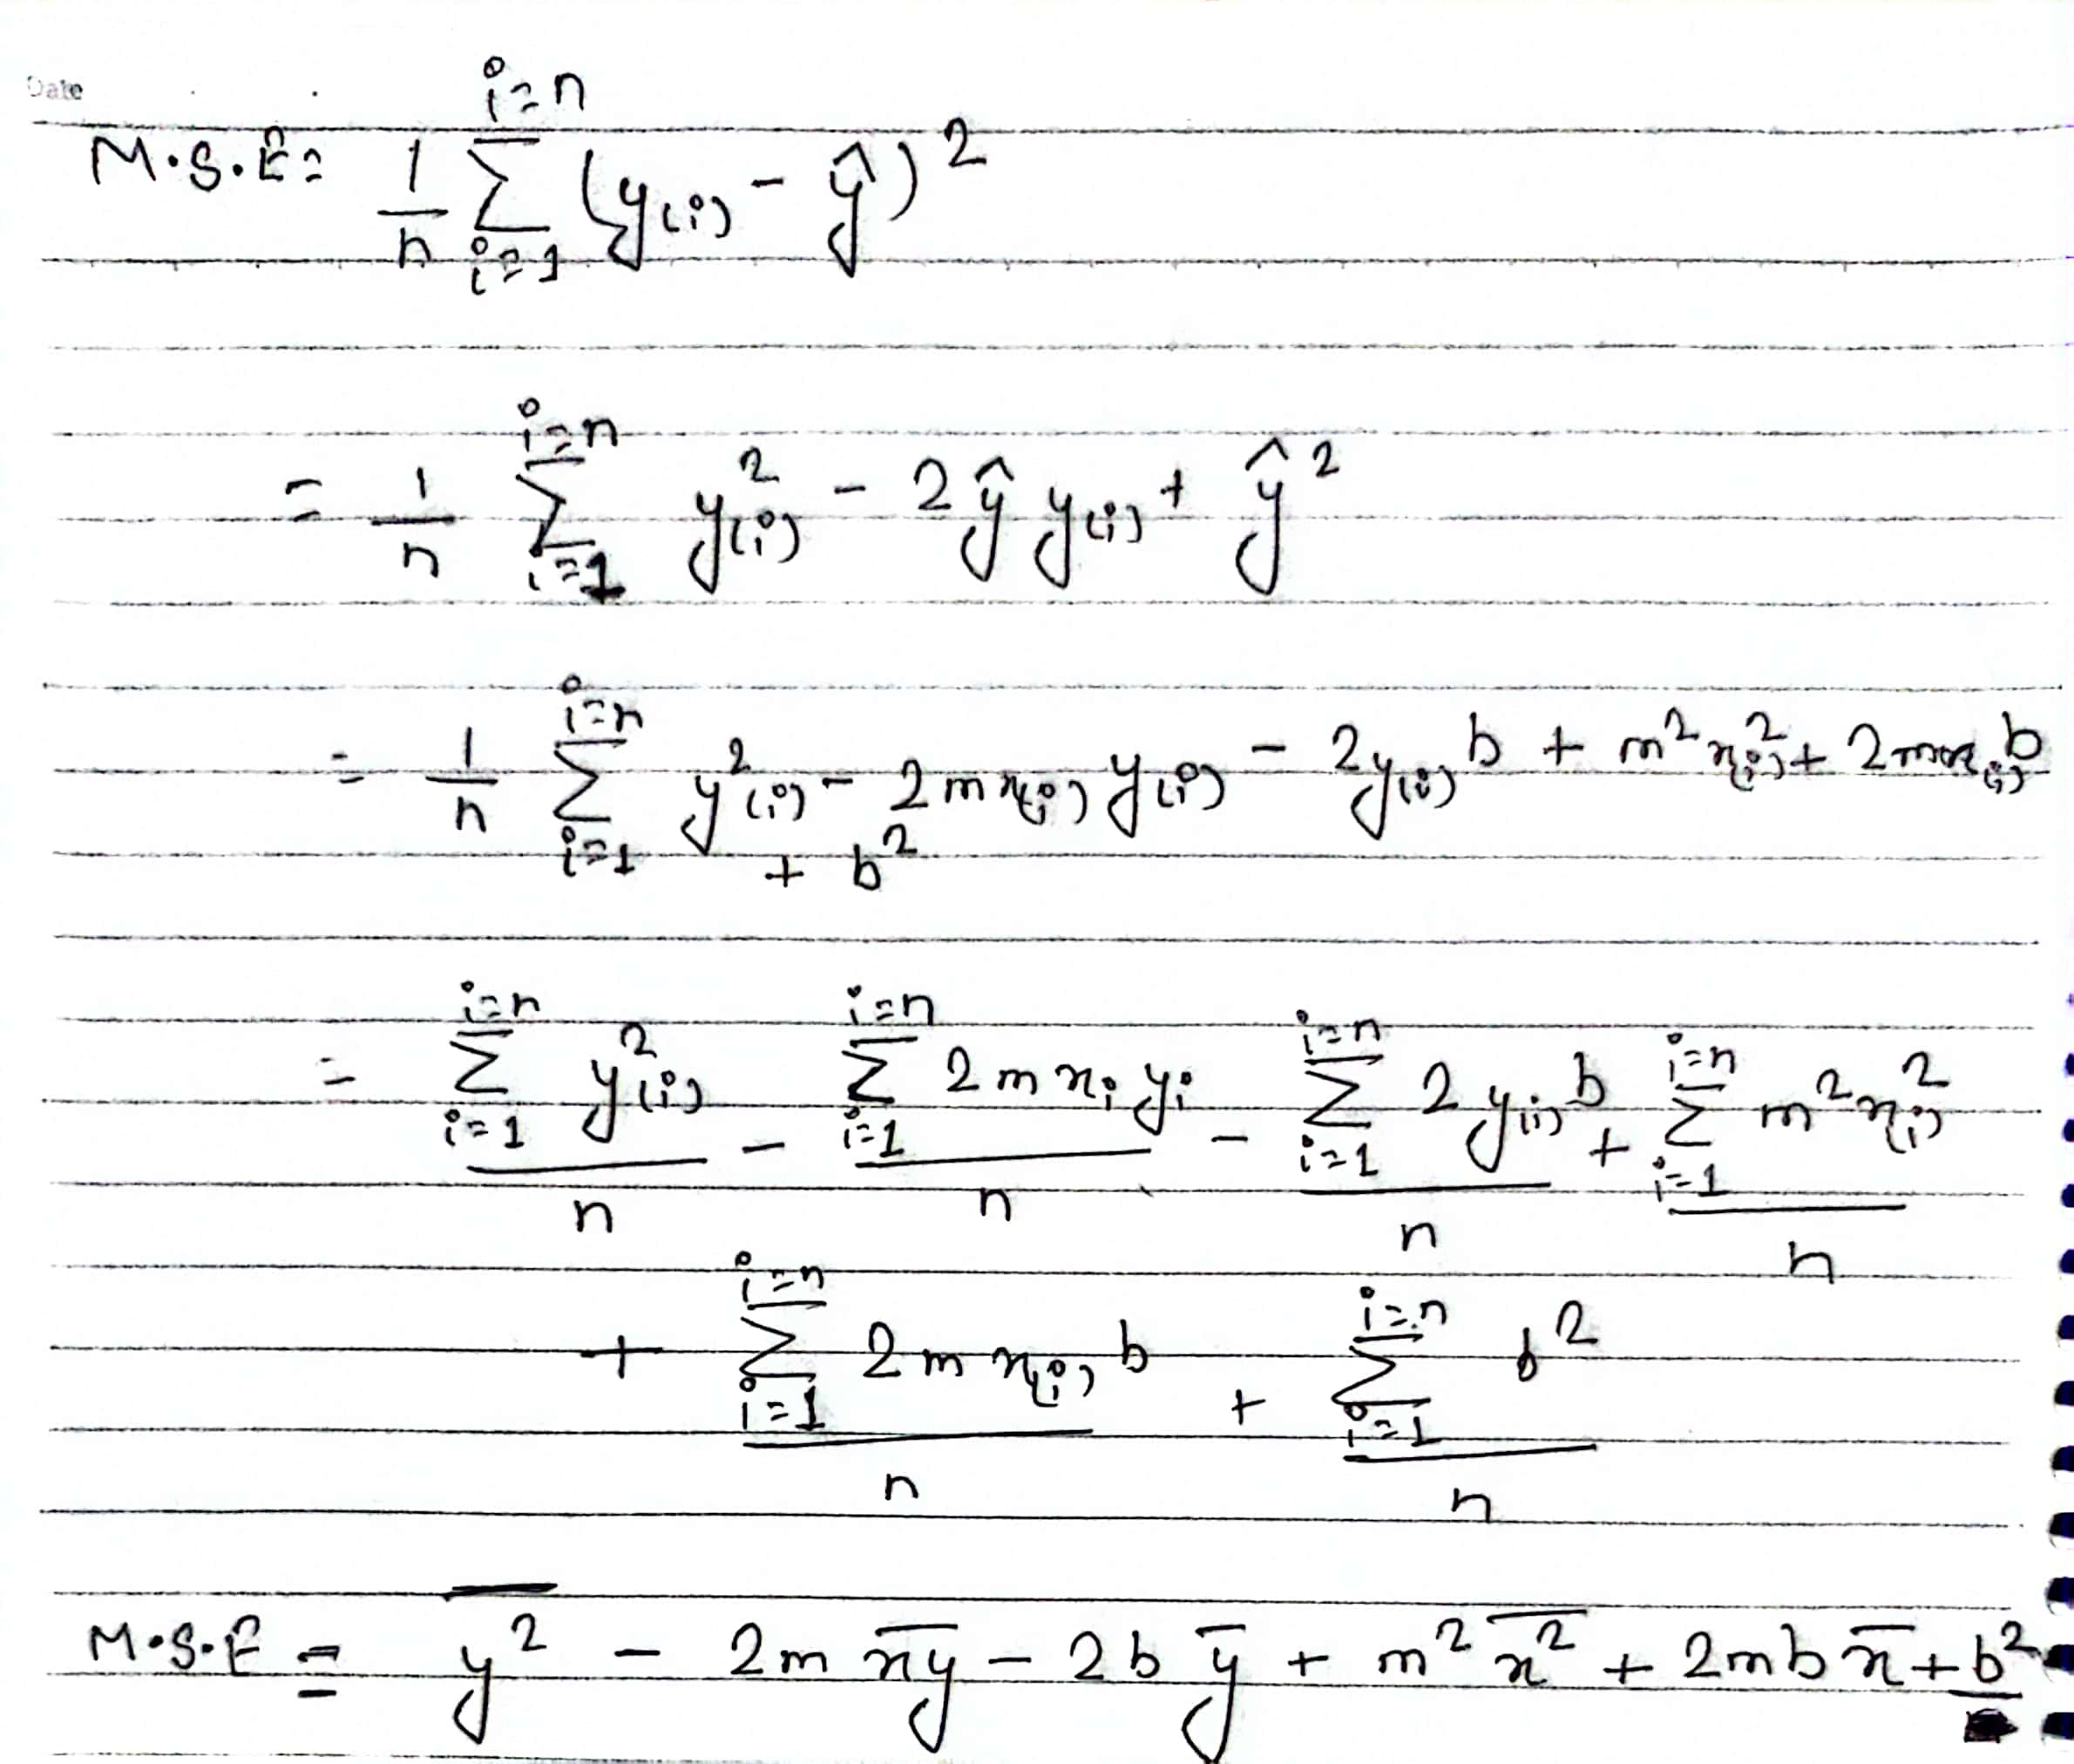 Date
M.S.E = 1/n Σ_{i=1}^{i=n} (y_(i) - ŷ)^2
= 1/n Σ_{i=1}^{i=n} y_(i)^2 - 2ŷ y_(i) + ŷ^2
= 1/n Σ_{i=1}^{i=n} y^2_(i) - 2mx_(i) y_(i) - 2y_(i) b + m^2 x_(i)^2 + 2mx_(i) b
+ b^2
= (Σ_{i=1}^{i=n} y_(i)^2)/n - (Σ_{i=1}^{i=n} 2mx_i y_i)/n - (Σ_{i=1}^{i=n} 2y_(i) b)/n + (Σ_{i=1}^{i=n} m^2 x_(i)^2)/n
+ (Σ_{i=1}^{i=n} 2mx_(i) b)/n + (Σ_{i=1}^{i=n} b^2)/n
M.S.E = \overline{y^2} - 2m \overline{xy} - 2b \overline{y} + m^2 \overline{x^2} + 2mb \overline{x} + b^2